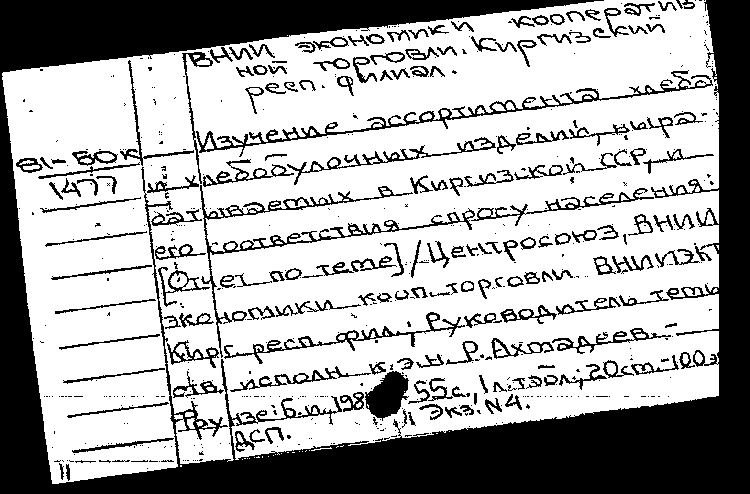 ВНИИ экономики кооператив-
ной торговли. Киргизский
респ. филиал.
Изучение ассортимента хлеба
81-50к
1477
и хлебобулочных изделий, выра-
батываемых в Киргизской ССР, и
его соответствия спросу населения:
[Отчет по теме] / Центросоюз, ВНИИ
экономики кооп. торговли ВНИИЭКТ
Кирг. респ. фил.; Руководитель темы
отв. исполн. к.э.н. Р. Ахмадеев. -
Фрунзе: Б.и., 198 55с., 1л. табл.; 20см. - 100э
ДСП. Экз. N4.
11